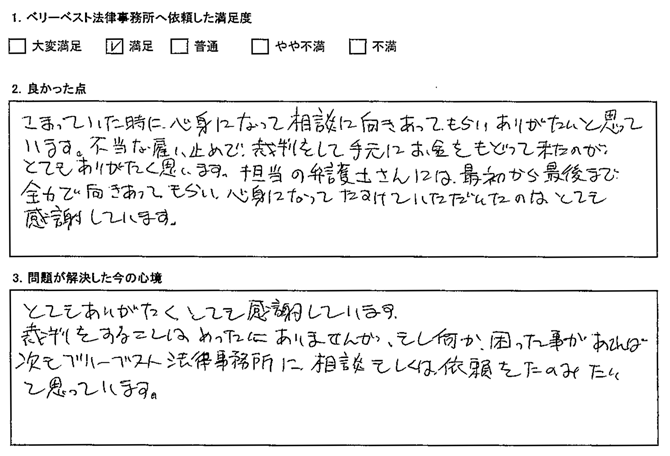 1. ベリーベスト法律事務所へ依頼した満足度
□ 大変満足 ☑ 満足 □ 普通 □ やや不満 □ 不満
2. 良かった点
こまっていた時に、心身になって相談に向きあってもらいありがたいと思って
います。不当な雇い止めで、裁判をして手元にお金をもどって来たのが
とてもありがたく思います。担当の弁護士さんには、最初から最後まで
全力で向きあってもらい、心身になってたすけていただいたのはとても
感謝しています。
3. 問題が解決した今の心境
とてもありがたく、とても感謝しています。
裁判をすることはめったにありませんが、もし何か、困った事があれば
次もベリーベスト法律事務所に、相談もしくは、依頼をたのみたい
と思っています。